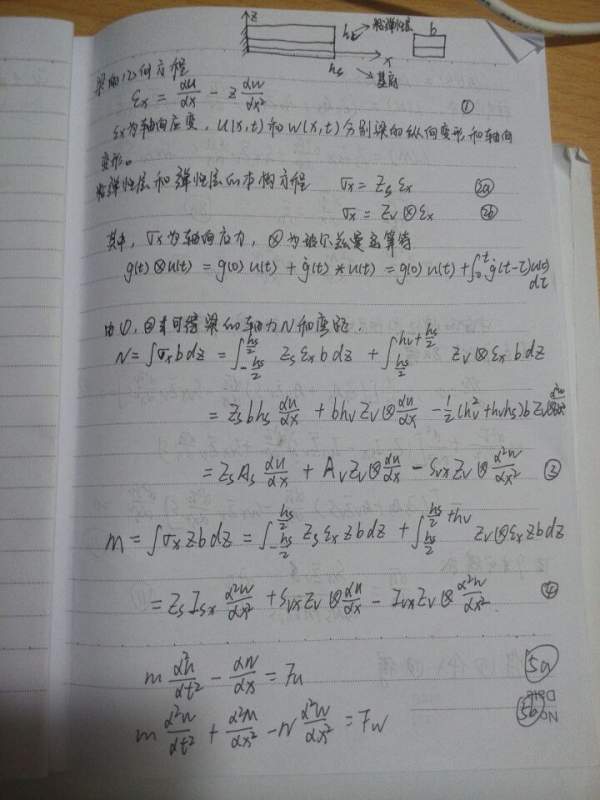 z hv 粘弹性层 b
hs x 基层
梁的几何方程
εx = du/dx - z d²w/dx² ①
εx为轴向应变，u(x,t)和w(x,t)分别梁的纵向变形和轴向
变形。
粘弹性层和弹性层的本构方程 σx = Zs εx 2a
σx = Zv ⊗ εx 2b
其中，σx为轴向应力，⊗为玻尔兹曼
g(t) ⊗ u(t) = g(0) u(t) + ġ(t) * u(t) = g(0) u(t) + ∫₀ᵗ ġ(t-τ) u(τ)
dτ
由①，②求可得梁的轴力N和
N = ∫σx b dz = ∫_{-hs/2}^{hs/2} Zs εx b dz + ∫_{hs/2}^{hv+hs/2} Zv ⊗ εx b dz
= Zs b hs du/dx + b hv Zv ⊗ du/dx - 1/2 (hv² + hv hs) b Zv ⊗ d²w/dx²
= Zs As du/dx + Av Zv ⊗ du/dx - Svx Zv ⊗ d²w/dx² ③
M = ∫σx z b dz = ∫_{-hs/2}^{hs/2} Zs εx z b dz + ∫_{hs/2}^{hs/2+hv} Zv ⊗ εx z b dz
= Zs Isx d²w/dx² + Svx Zv ⊗ du/dx - Ivx Zv ⊗ d²w/dx². ④
m d²u/dt² - dN/dx = Fu 5a
m d²w/dt² + d²M/dx² - N d²w/dx² = Fw 5b
No
Date